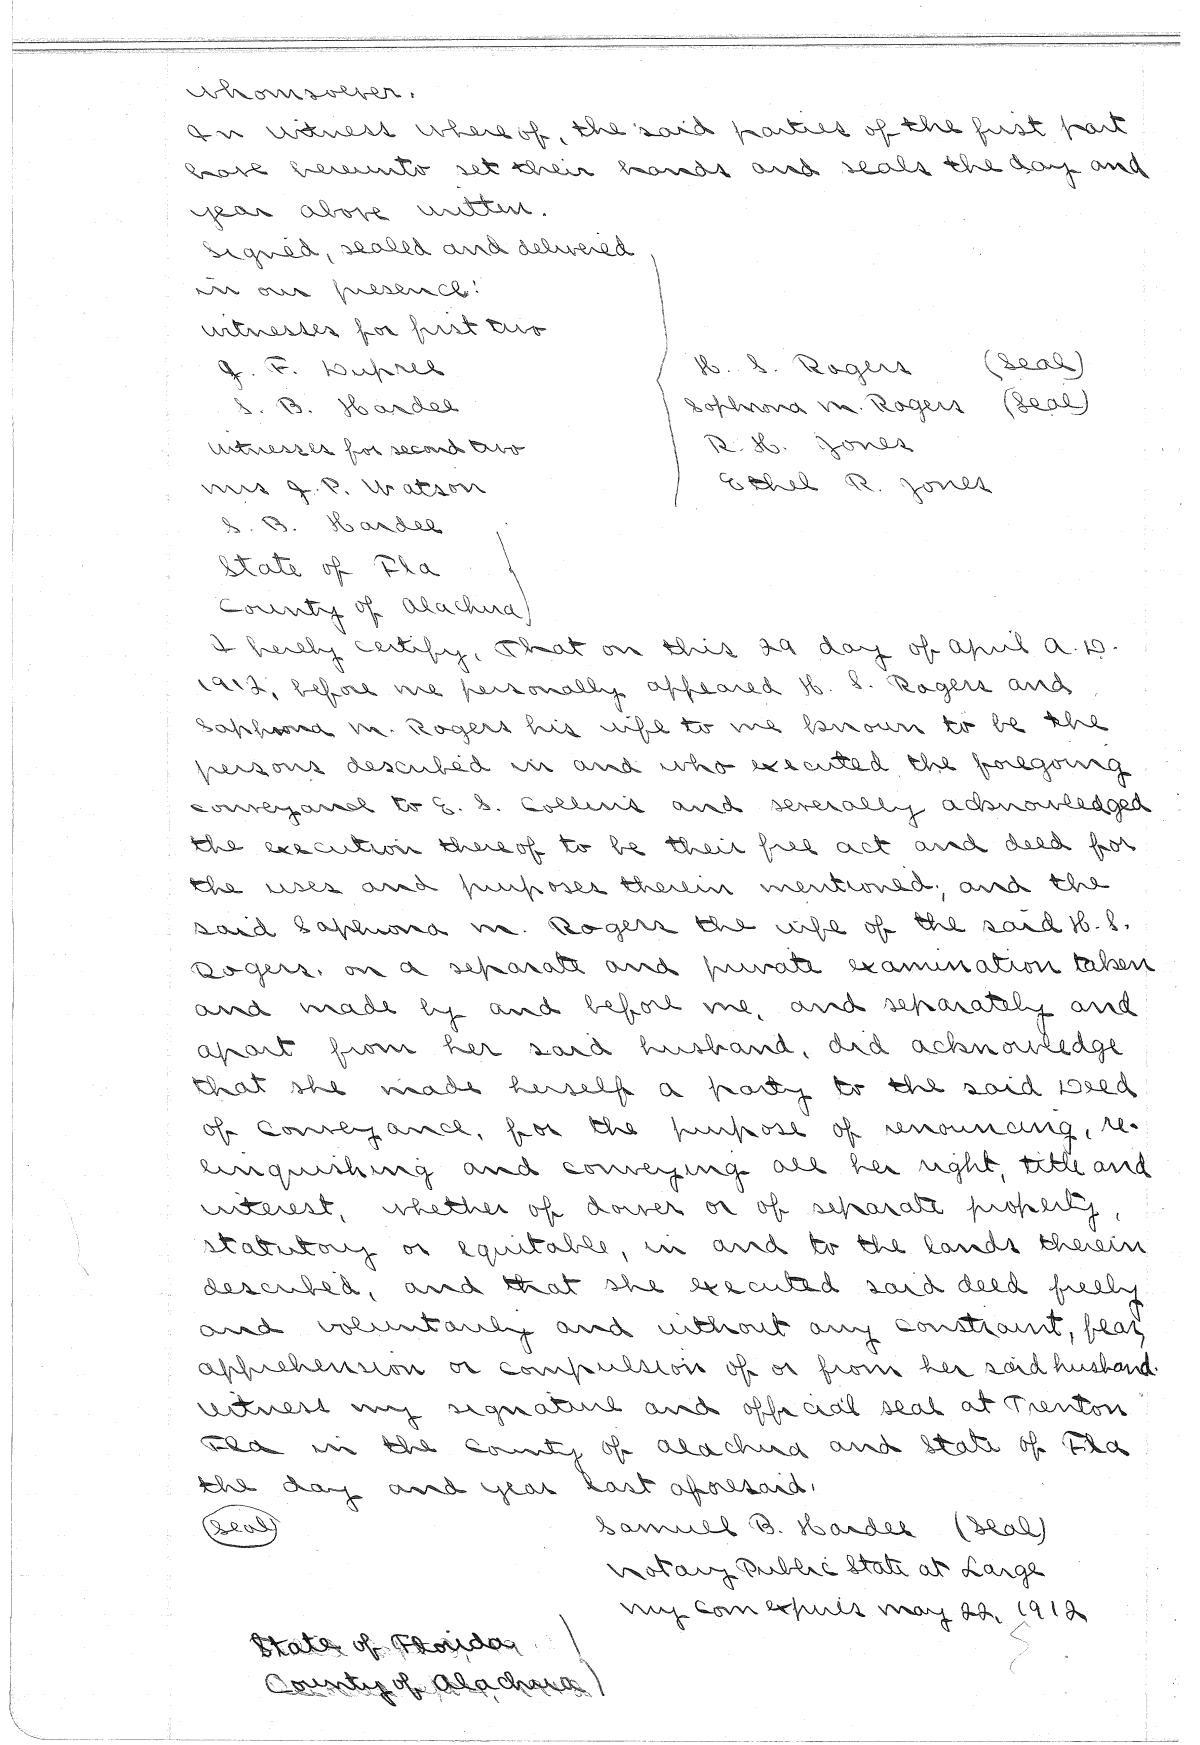 whomsoever.
In witness whereof, the said parties of the first part
have hereunto set their hands and seals the day and
year above written.
Signed, sealed and delivered
in our presence:
witnesses for first two
J. F. Dupree
S. B. Hardee
witnesses for second two
Mrs J. P. Watson
S. B. Hardee
H. S. Rogers (Seal)
Sophrona M. Rogers (Seal)
R. H. Jones
Ethel R. Jones
State of Fla
County of Alachua
I hereby certify, That on this 29 day of April A.D.
1912, before me personally appeared H. S. Rogers and
Saphrona M. Rogers his wife to me known to be the
persons described in and who executed the foregoing
conveyance to E. S. Collins and severally acknowledged
the execution thereof to be their free act and deed for
the uses and purposes therein mentioned; and the
said Saphrona M. Rogers the wife of the said H. S.
Rogers. on a separate and private examination taken
and made by and before me, and separately and
apart from her said husband, did acknowledge
that she made herself a party to the said Deed
of conveyance, for the purpose of renouncing, re-
linquishing and conveying all her right, title and
interest, whether of dower or of separate property,
statutory or equitable, in and to the lands therein
described, and that she executed said deed freely
and voluntarily and without any constraint, fear,
apprehension or compulsion of or from her said husband.
witness my signature and official seal at Trenton
Fla in the County of Alachua and State of Fla
the day and year last aforesaid.
(Seal) Samuel B. Hardee (Seal)
Notary Public State at Large
My Com expires May 22, 1912
State of Florida
County of Alachua